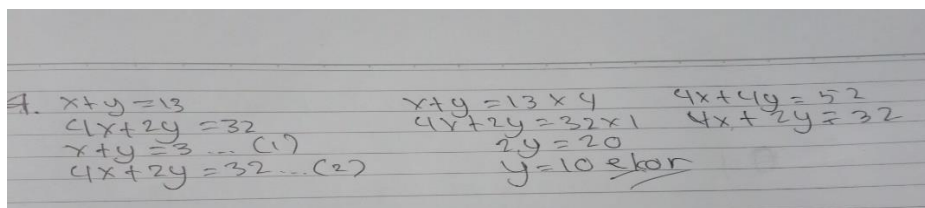 4. x+y=13
4x+2y=32
x+y=3 ... (1)
4x+2y=32 ... (2)
x+y=13×4
4x+2y=32×1
2y=20
y=10 ekor
4x+4y=52
4x+2y=32